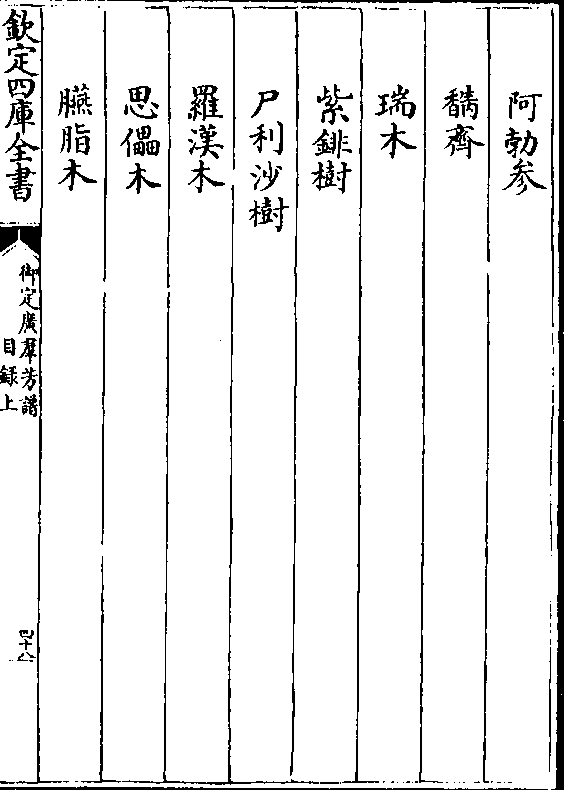 阿勃參
齊
瑞木
紫鉚樹
尸利沙樹
羅漢木
思儡木
臙脂木
欽定四庫全書
御定廣羣芳譜
目錄上
四十八